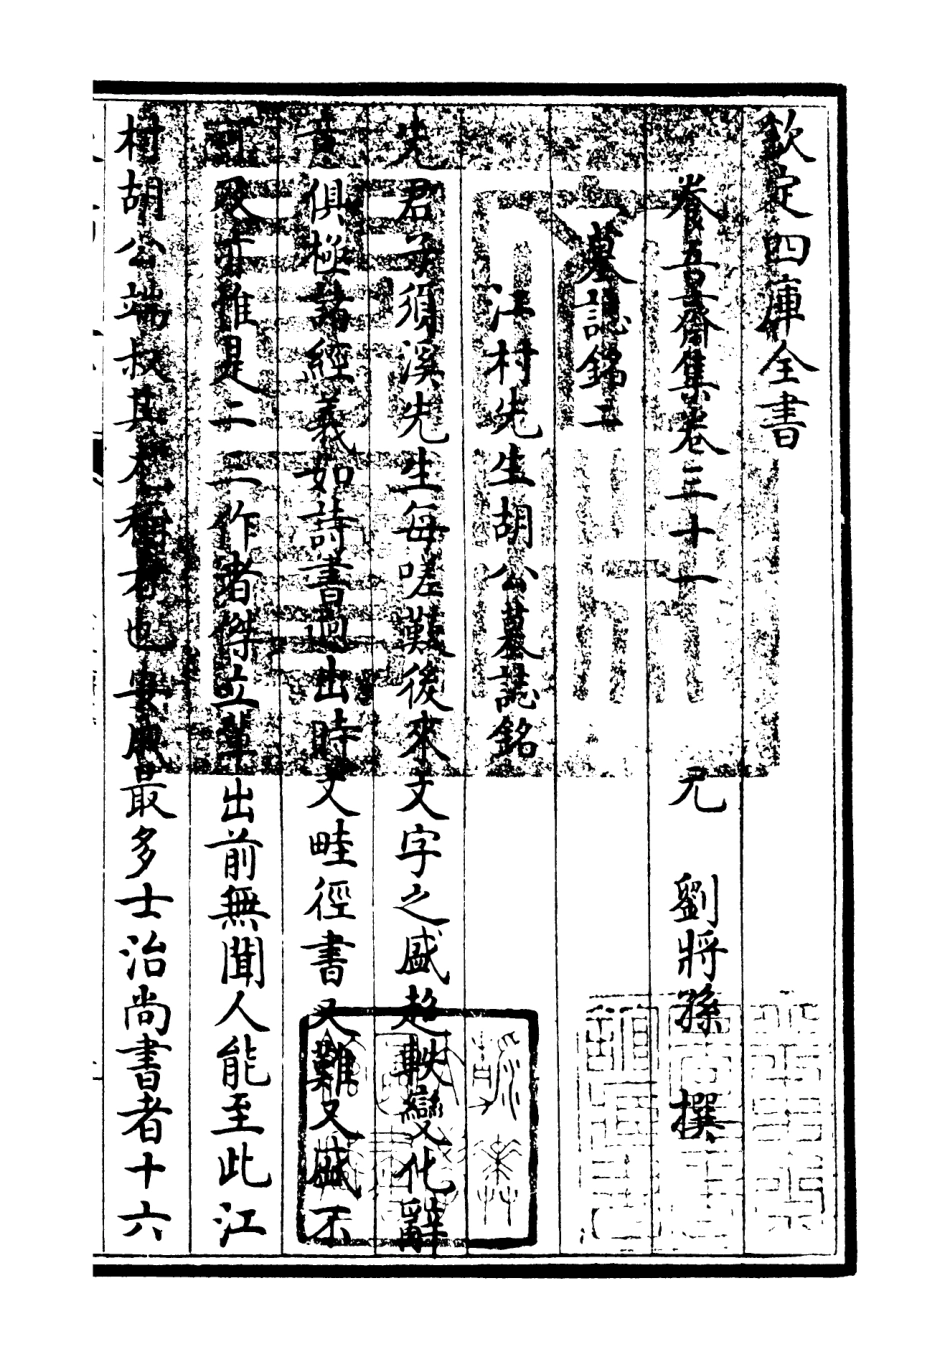 欽定四庫全書
養吾齋集卷三十一 元 劉將孫 撰
墓誌銘二
江村先生胡公墓誌銘
先君子須溪先生每嗟歎後來文字之盛超軼變化辭
意俱極諸經義如詩書過出時文畦徑書又難又盛不
可及亦惟是二三作者傑立輩出前無聞人能至此江
村胡公端叔其尤稱者也安成最多士治尚書者十六